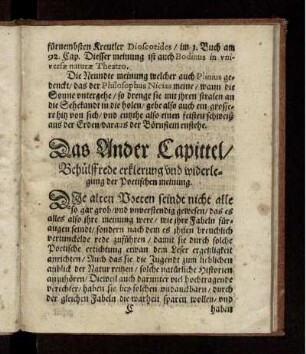 fürnembsten Kreutler Dioscorides / im 1. Buch am
92. Cap. Diesser meinung ist auch Bodinus in vni-
versæ naturæ Theatro.
Die Neundte meinung welcher auch Plinius ge-
dencket / das der Philosophus Nicias meine / wann die
Sonne vntergehe / so drenge sie mit jhren stralen an
die Sehekandt in die holen / gebe also auch ein grosse-
re hitz von sich / vnd
aus der Erden daraus der Börnstein entstehe.
Das Ander Capittel /
Behülffrede erklerung vnd widerle-
gung der Poetischen meinung.
DIe alten Poeten seindt nicht alle
so gar grob / vnd unverstendig gewesen / das es
alles also jhre meinung were / wie jhre Fabeln für-
augen seindt / sondern nach dem es jhnen breuchlich
vermundelte rede zuführen / damit sie durch solche
Poetische errichtung etwan dem Leser ergetzligkeit
anrichten / Auch das sie die Jugendt zum lieblichen
anblick der Natur reitzen / solche natürliche Historien
anzuhören / Dieweil auch darunter viel hochtragende
verechter / haben sie bey solchen vndanckbarn / durch
der gleichen Fabeln die warheit sparen wollen / vnd
C haben